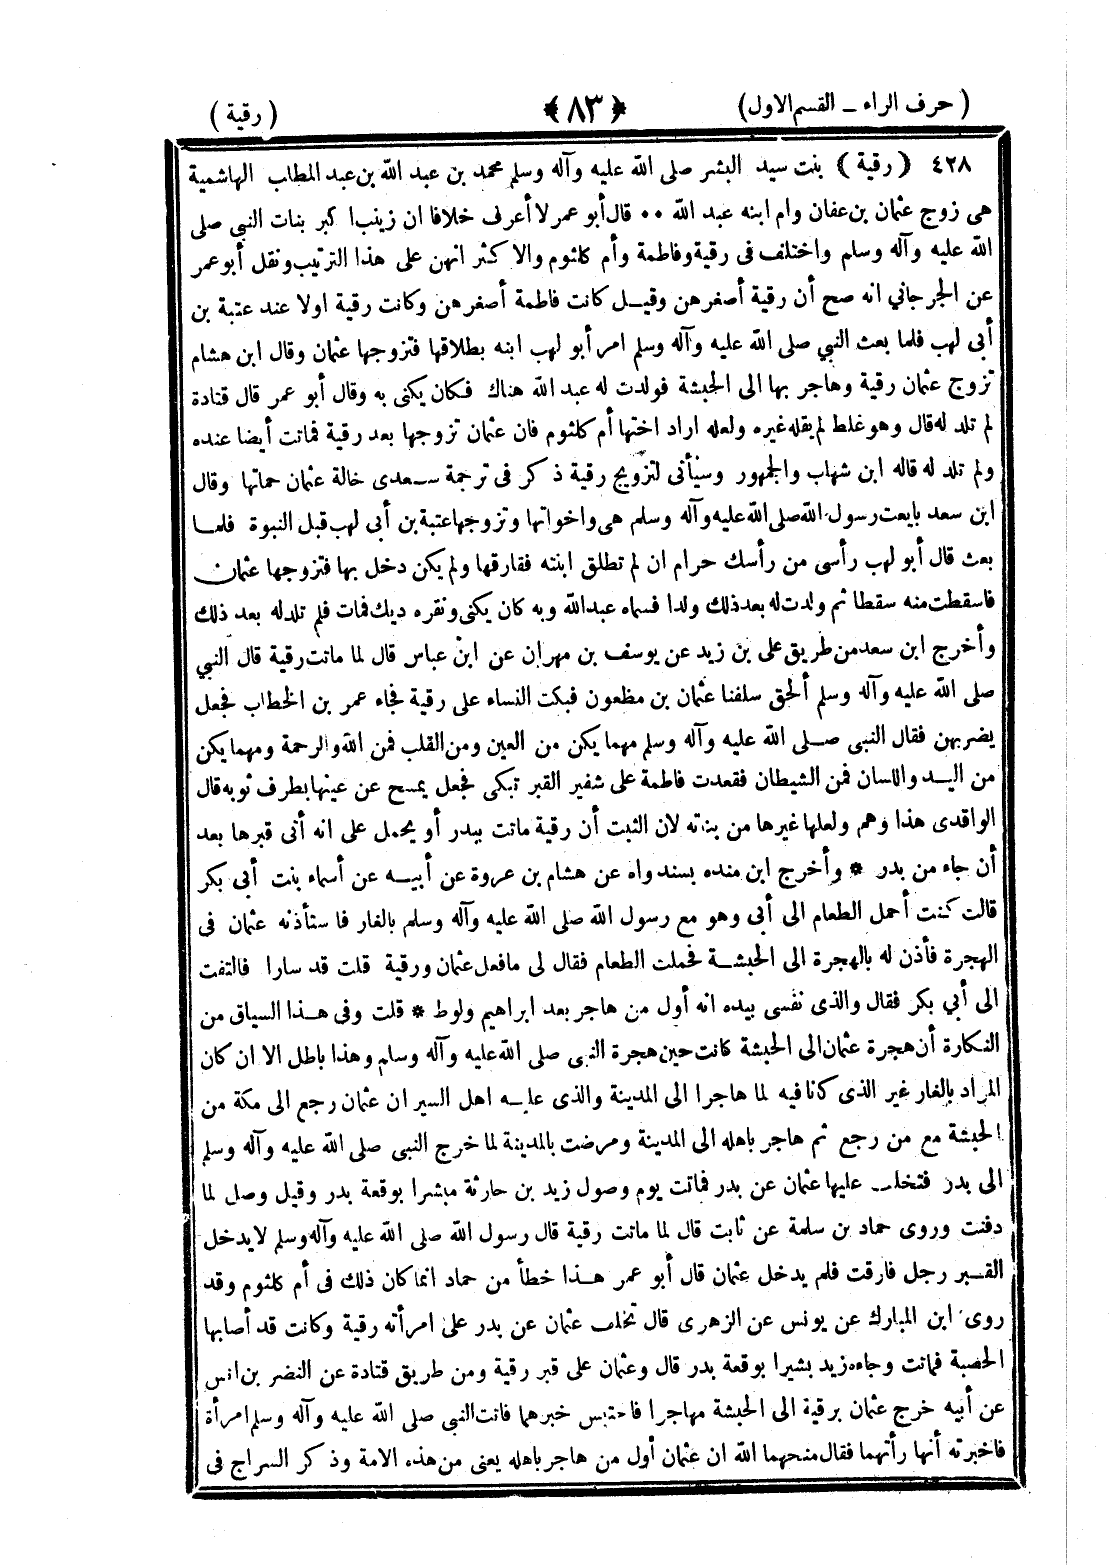 ( حرف الراء ــ القسم الاول) ﴿ ٨٣ ﴾ ( رقية )
٤٢٨ ( رقية ) بنت سيد البشر صلى الله عليه وآله وسلم محمد بن عبد الله بن عبد المطلب الهاشمية
هى زوج عثمان بن عفان وام ابنه عبد الله ٠٠ قال أبو عمر لا أعرف خلافا ان زينب ا كبر بنات النبي صلى
الله عليه وآله وسلم واختلف فى رقية وفاطمة وأم كلثوم والا كثر انهن على هذا الترتيب ونقل أبو عمر
عن الجرجاني انه صح أن رقية أصغرهن وقيــل كانت فاطمة أصغرهن وكانت رقية اولا عند عتبة بن
أبى لهب فلما بعث النبي صلى الله عليه وآله وسلم امر أبو لهب ابنه بطلاقها فتزوجها عثمان وقال ابن هشام
تزوج عثمان رقية وهاجر بها الى الحبشة فولدت له عبد الله هناك فكان يكنى به وقال أبو عمر قال قتادة
لم تلد له قال وهو غلط لم يقله غيره ولعله اراد اختها أم كلثوم فان عثمان تزوجها بعد رقية فماتت أيضا عنده
ولم تلد له قاله ابن شهاب والجمهور وسيأتى لتزويج رقية ذ كر فى ترجمة سـعدى خالة عثمان حماتها وقال
ابن سعد بايعت رسول الله صلى الله عليه وآله وسلم هى واخواتها وتزوجها عتبة بن أبى لهب قبل النبوة فلمـا
بعث قال أبو لهب رأسى من رأسك حرام ان لم تطلق ابنته ففارقها ولم يكن دخل بها فتزوجها عثمان
فاسقطت منه سقطا ثم ولدت له بعد ذلك ولدا فسماه عبد الله وبه كان يكنى ونقره ديك فمات فلم تلد له بعد ذلك
وأخرج ابن سعد من طريق على بن زيد عن يوسف بن مهران عن ابن عباس قال لما ماتت رقية قال النبي
صلى الله عليه وآله وسلم ألحق سلفنا عثمان بن مظعون فبكت النساء على رقية فجاء عمر بن الخطاب فجعل
يضربهن فقال النبى صــلى الله عليه وآله وسلم مهما يكن من العين ومن القلب فمن الله والرحمة ومهما يكن
من اليـد واللسان فمن الشيطان فقعدت فاطمة على شفير القبر تبكى فجعل يمسح عن عينها بطرف ثوبه قال
الواقدى هذا وهم ولعلها غيرها من بناته لان الثبت أن رقية ماتت ببدر أو يحمل على انه أتى قبرها بعد
أن جاء من بدر * وأخرج ابن منده بسند واه عن هشام بن عروة عن أبيــه عن أسماء بنت أبى بكر
قالت كنت أحمل الطعام الى أبى وهو مع رسول الله صلى الله عليه وآله وسلم بالغار فا ستأذنه عثمان فى
الهجرة فأذن له بالهجرة الى الحبشــة فحملت الطعام فقال لى ما فعل عثمان ورقية قلت قد سارا فالتفت
الى أبي بكر فقال والذى نفسى بيده انه أول من هاجر بعد ابراهيم ولوط * قلت وفى هـذا السياق من
النكارة أن هجرة عثمان الى الحبشة كانت حين هجرة النبى صلى الله عليه وآله وسلم وهذا باطل الا ان كان
المراد بالغار غير الذى كانا فيه لما هاجرا الى المدينة والذى عليـه اهل السير ان عثمان رجع الى مكة من
الحبشة مع من رجع ثم هاجر باهله الى المدينة ومرضت بالمدينة لما خرج النبى صلى الله عليه وآله وسلم
الى بدر فتخلـف عليها عثمان عن بدر فماتت يوم وصول زيد بن حارثة مبشرا بوقعة بدر وقيل وصل لما
دفنت وروى حماد بن سلمة عن ثابت قال لما ماتت رقية قال رسول الله صلى الله عليه وآله وسلم لا يدخل
القــبر رجل قارف فلم يدخل عثمان قال أبو عمر هـذا خطأ من حماد انما كان ذلك فى أم كلثوم وقد
روى ابن المبارك عن يونس عن الزهرى قال تخلف عثمان عن بدر على امرأته رقية وكانت قد أصابها
الحصبة فماتت وجاء زيد بشيرا بوقعة بدر قال وعثمان على قبر رقية ومن طريق قتادة عن النضر بن انس
عن أبيه خرج عثمان برقية الى الحبشة مهاجرا فاحتبس خبرهما فاتت النبي صلى الله عليه وآله وسلم امرأة
فاخبرته أنها رأتهما فقال منحهما الله ان عثمان أول من هاجر باهله يعنى من هذه الامة وذ كر السراج فى